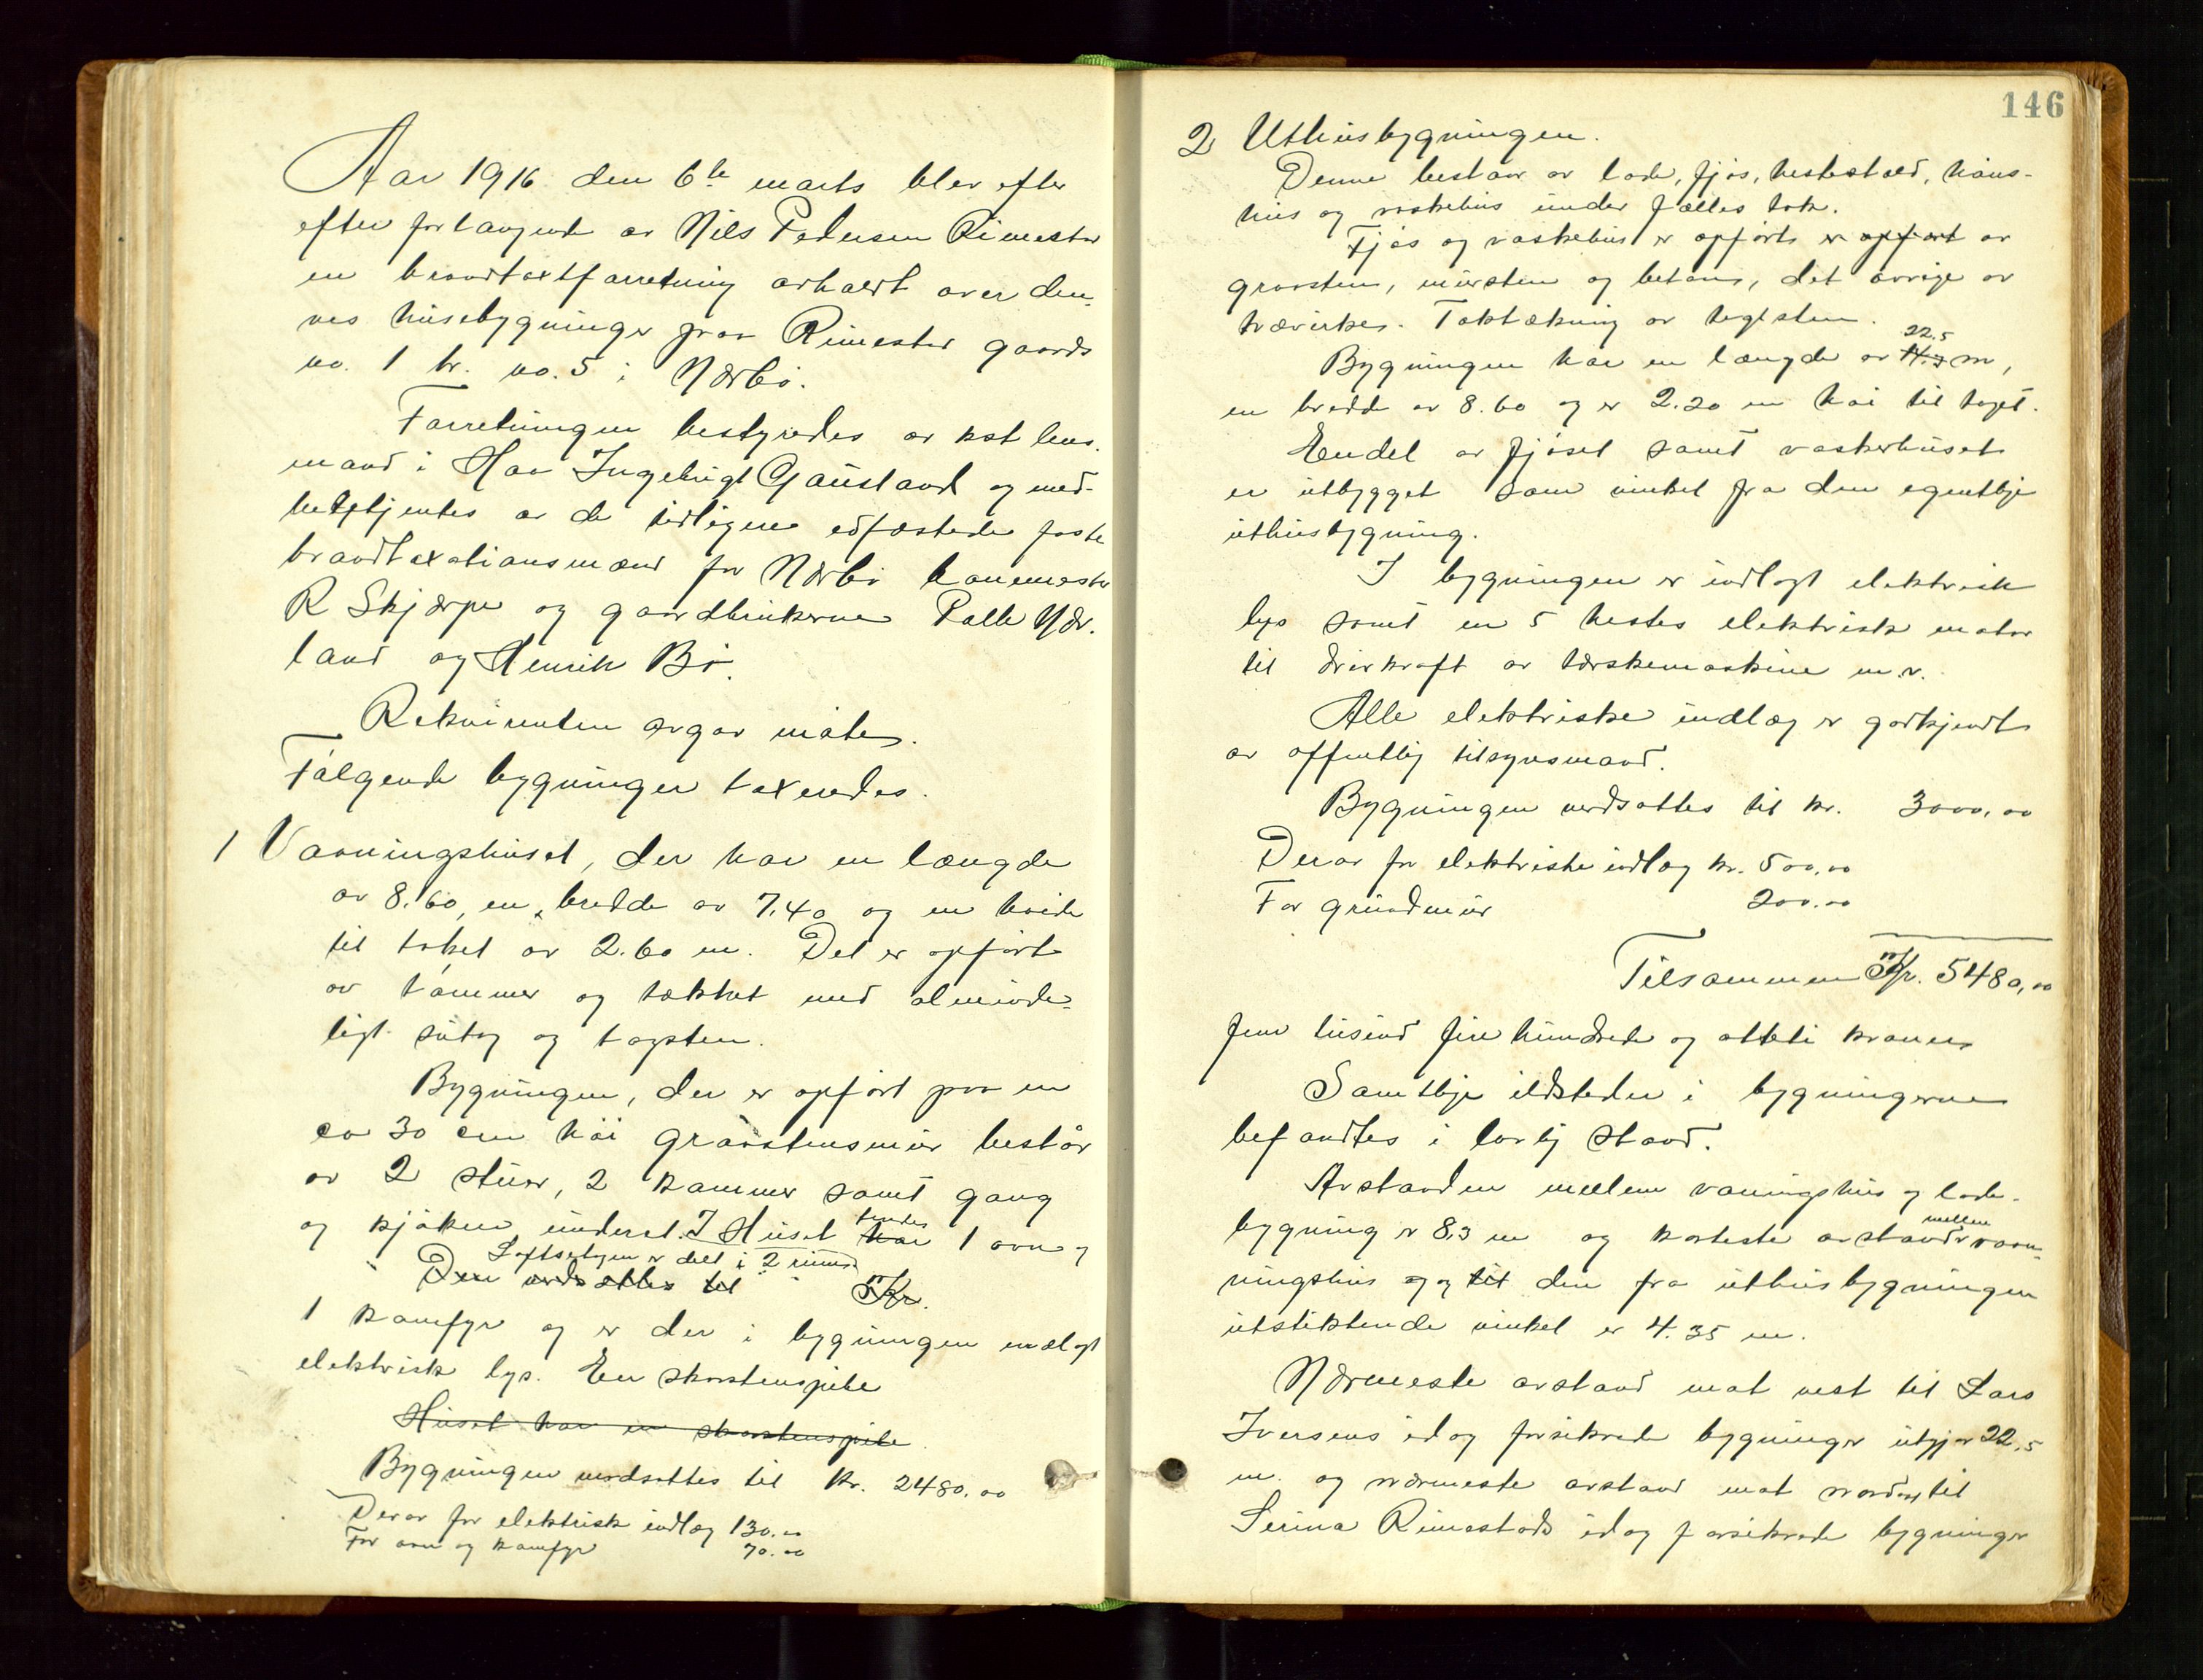 Aar 1916 den 6te marts blev efter
efter forlangende av Nils Pedersen Rimestad
en brandtaxtforretning avholdt over den-
nes husebygninger paa Rimestad gaards
no. 1 br. no. 5 i Nærbø.
Forretningen bestyredes av kst lens.
mand i Haa Ingebrigt Gaustand og med-
betjentes av de tidligere edfæstede faste
brandtaxationsmænd for Nærbø kanemester
R Skjærpe og gaardbrukerne Palle Nær.
land og Henrik Bø.
Rekvirenten ogsaa møter.
Følgende bygninger taxeredes.
1 Vaaningshuset, der har en længde
av 8.60, en bredde av 7,40 og en høide
til taket av 2.60 m. Det er opført
av tømmer og tækket med alminde-
ligt sutag og tagsten.
Bygningen, der er opført paa en
ca 30 cm høi graastensmur består
av 2 stuer, 2 kammer samt gang
og kjøken underst. I Huset findes har 1 ovn og
Loftsetagen er delt i 2 rum
Den verdsættes til Kr.
1 komfyr og er der i bygningen indlagt
elektrisk lys. En skorstenspibe
Huset har en skorstenspibe.
Bygningen verdsættes til kr. 2480.00
Derav for elektrisk indlæg 130.00
For ovn og komfyr 70.00
146
2 Uthusbygningen.
Denne bestaar av lade, fjøs, hestestald, høns-
hus og vaskehus under fælles tak.
Fjøs og vaskehus er opført er opført av
graasten, mursten og betong, det øvrige av
trævirke. Taktækning av teglsten.
22,5
Bygningen har en længde av m,
en bredde av 8.60 og er 2.20 m høi til taget.
Endel av fjøset samt vaskerhuset
er utbygget som vinkel fra den egentlige
uthusbygning.
I bygningen er indlagt elektrisk
lys samt en 5 hestes elektrisk motor
til drivkraft av tærskemaskine m.v.
Alle elektriske indlæg er godkjendt
av offentlig tilsynsmand.
Bygningen verdsættes til kr. 3000,00
Derav for elektriske indlæg kr. 500,00
For grundmur 200.00
Tilsammen Kr. 5480,00
fem tusind fire hundrede og otteti kroner
Samtlige ildsteder i bygningerne
befandtes i lovlig stand.
Avstanden mellem vaaningshus og lade-
bygning er 8,3 m og korteste avstand mellem vaa-
ningshus og til den fra uthusbygningen
utstikkende vinkel er 4.35 m.
Nærmeste avstand mot vest til Lars
Iversens id og forsikrede bygninger utgjør 22,5
m. og nærmeste avstand mot nordøst til
Serina Rimestads id og forsikrede bygninger